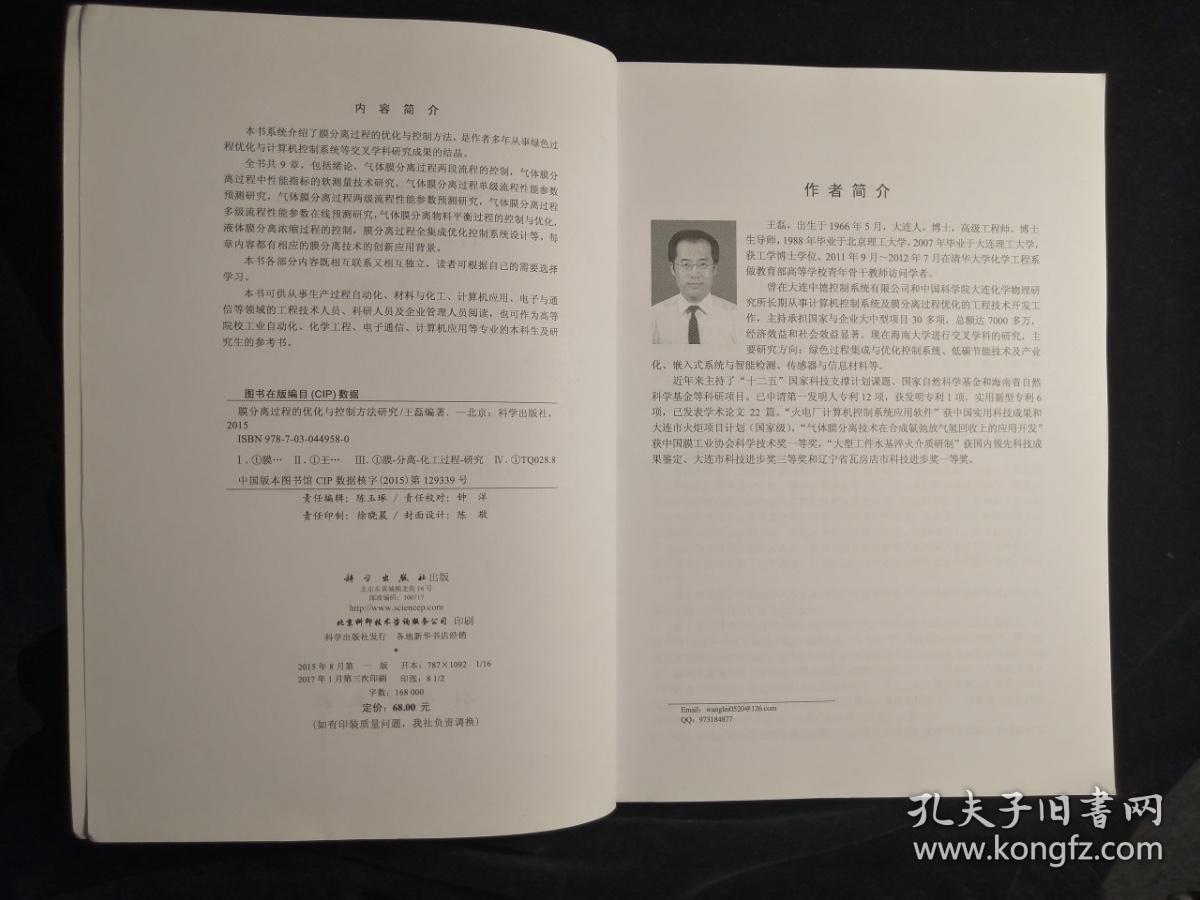 内容简介
本书系统介绍了膜分离过程的优化与控制方法，是作者多年从事绿色过
程优化与计算机控制系统等交叉学科研究成果的结晶。
全书共 9 章，包括绪论，气体膜分离过程两段流程的控制，气体膜分
离过程中性能指标的软测量技术研究，气体膜分离过程单级流程性能参数
预测研究，气体膜分离过程两级流程性能参数预测研究，气体膜分离过程
多级流程性能参数在线预测研究，气体膜分离物料平衡过程的控制与优化，
液体膜分离浓缩过程的控制，膜分离过程全集成优化控制系统设计等，每
章内容都有相应的膜分离技术的创新应用背景。
本书各部分内容既相互联系又相互独立，读者可根据自己的需要选择
学习。
本书可供从事生产过程自动化、材料与化工、计算机应用、电子与通
信等领域的工程技术人员、科研人员及企业管理人员阅读，也可作为高等
院校工业自动化、化学工程、电子通信、计算机应用等专业的本科生及研
究生的参考书。
图书在版编目(CIP)数据
膜分离过程的优化与控制方法研究/王磊编著．—北京：科学出版社，
2015
ISBN 978-7-03-044958-0
Ⅰ．①膜… Ⅱ．①王… Ⅲ．①膜-分离-化工过程-研究 Ⅳ．①TQ028.8
中国版本图书馆 CIP 数据核字(2015)第 129339 号
责任编辑：陈玉琢 / 责任校对：钟 洋
责任印制：徐晓晨 / 封面设计：陈 敬
科学出版社出版
北京东黄城根北街 16 号
邮政编码：100717
http://www.sciencep.com
北京科印技术咨询服务公司 印刷
科学出版社发行 各地新华书店经销
*
2015 年 8 月第 一 版 开本：787×1092 1/16
2017 年 1 月第三次印刷 印张：8 1/2
字数：168 000
定价：68.00 元
(如有印装质量问题，我社负责调换)
作者简介
王磊，出生于 1966 年 5 月，大连人，博士，高级工程师，博士
生导师，1988 年毕业于北京理工大学，2007 年毕业于大连理工大学，
获工学博士学位。2011 年 9 月～2012 年 7 月在清华大学化学工程系
做教育部高等学校青年骨干教师访问学者。
曾在大连中德控制系统有限公司和中国科学院大连化学物理研
究所长期从事计算机控制系统及膜分离过程优化的工程技术开发工
作，主持承担国家与企业大中型项目 30 多项，总额达 7000 多万，
经济效益和社会效益显著。现在海南大学进行交叉学科的研究，主
要研究方向：绿色过程集成与优化控制系统、低碳节能技术及产业
化、嵌入式系统与智能检测、传感器与信息材料等。
近年来主持了“十二五”国家科技支撑计划课题、国家自然科学基金和海南省自然
科学基金等科研项目。已申请第一发明人专利 12 项，获发明专利 1 项，实用新型专利 6
项，已发表学术论文 22 篇。“火电厂计算机控制系统应用软件”获中国实用科技成果和
大连市火炬项目计划（国家级），“气体膜分离技术在合成氨弛放气氢回收上的应用开发”
获中国膜工业协会科学技术奖一等奖，“大型工件水基淬火介质研制”获国内领先科技成
果鉴定、大连市科技进步奖三等奖和辽宁省瓦房店市科技进步奖一等奖。
Email：wanglei0520@126.com
QQ：973184877
孔夫子旧书网
www.kongfz.com